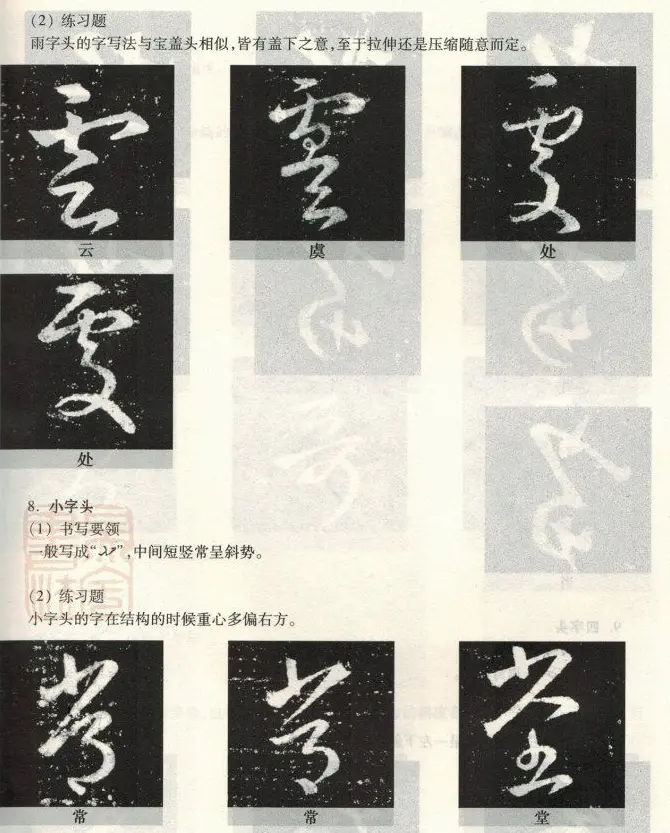 （2）练习题
雨字头的字写法与宝盖头相似，皆有盖下之意，至于拉伸还是压缩随意而定。
云
虞
处
处
8. 小字头
（1）书写要领
一般写成“”，中间短竖常呈斜势。
（2）练习题
小字头的字在结构的时候重心多偏右方。
常
常
堂